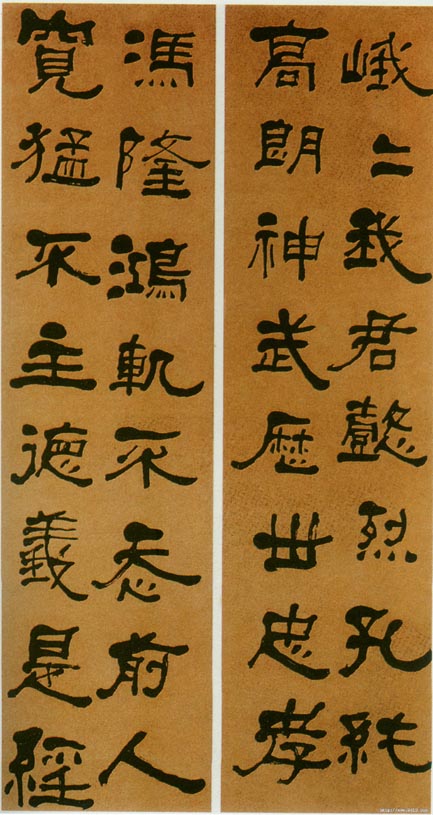 峨〻我君懿烈孔純
高朗神武歷世忠孝
馮隆鴻軌不忝前人
寬猛不主德義是經